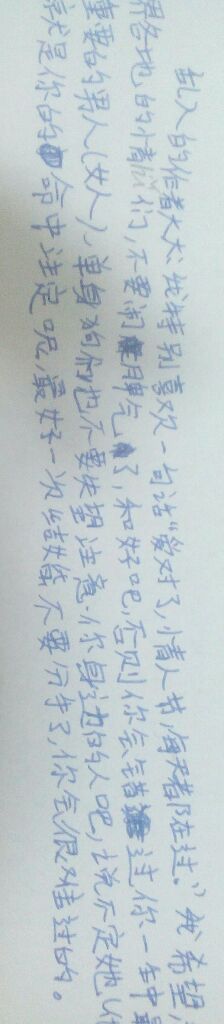 乱入的作者大大:我特别喜欢一句话“爱对了,情人节,每天都在过。”我希望,
界各地的情侣们,不要闹脾气了,和好吧,否则你会错过你一生中最
重要的男人(女人),单身狗们也不要失望,注意你身边的人吧,说不定她(他
就是你的命中注定呢,最好一次结婚不要分手了,你会很难过的。